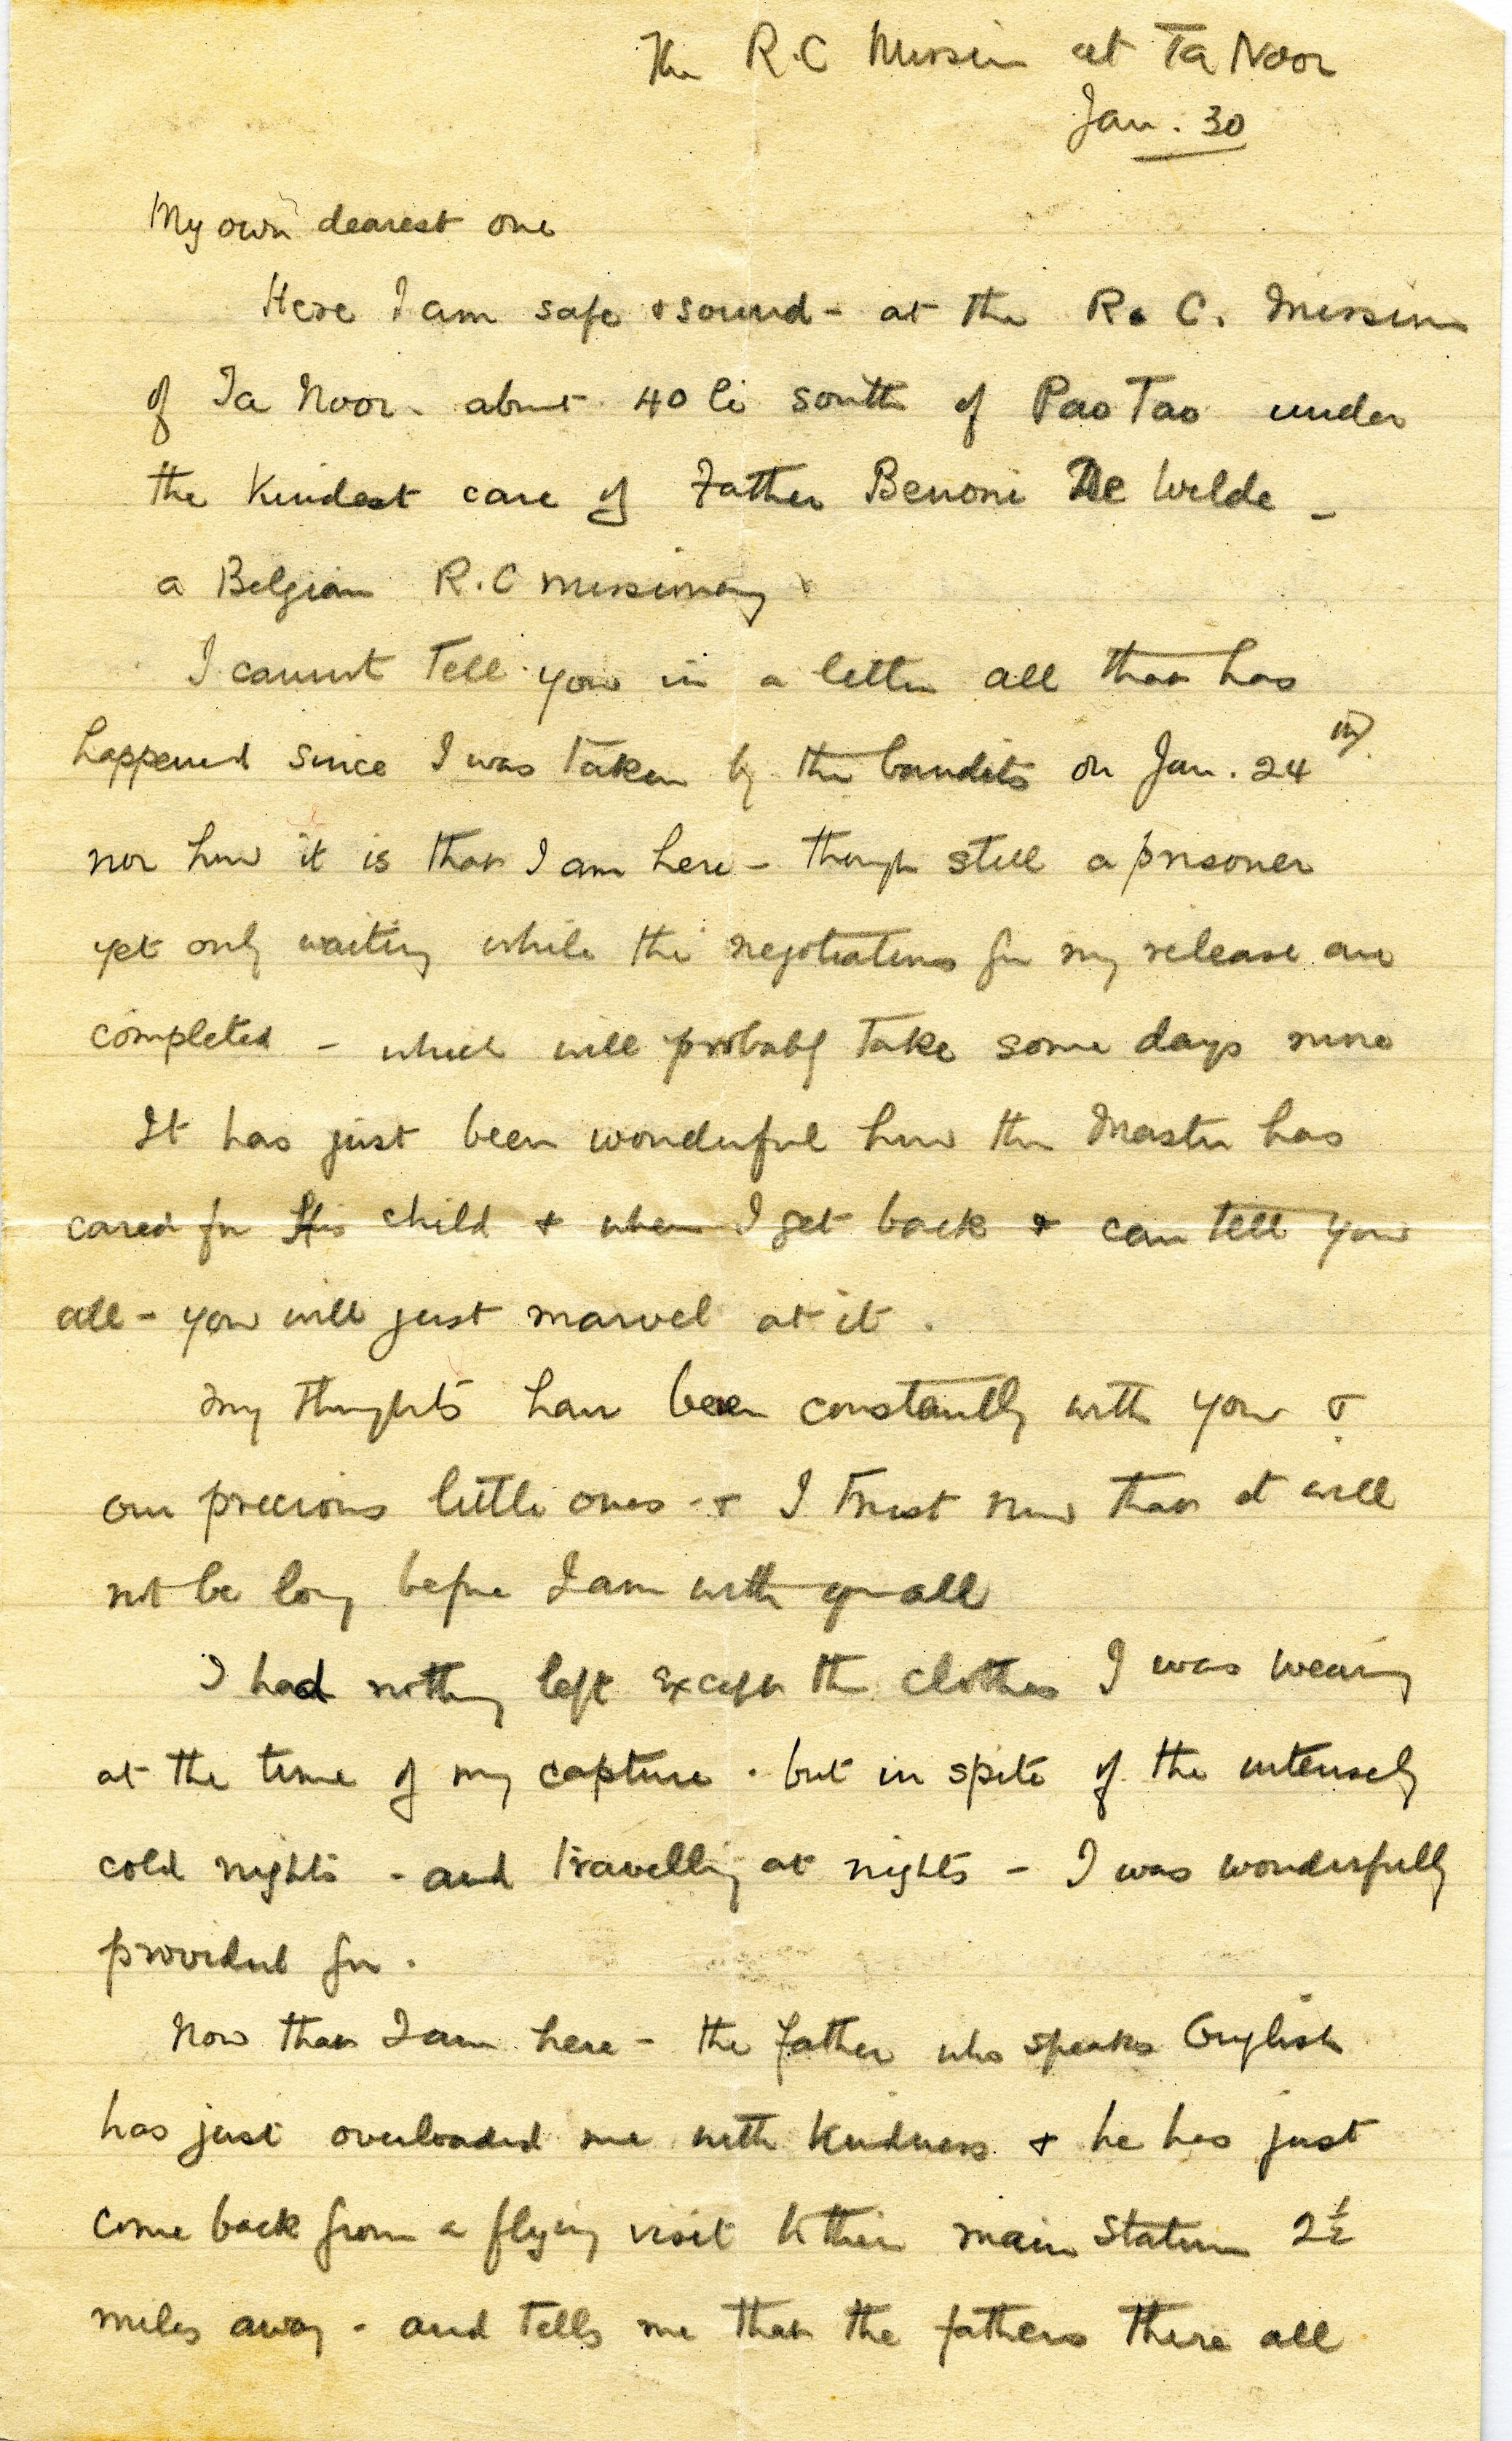 The R.C Mission at Ta Noor
Jan. 30
My own dearest one
Here I am safe & sound - at the R. C. Mission
of Ta Noor - about 40 li south of Pao Tao under
the kindest care of Father Benoni De Wilde -
a Belgian R.C missionary
I cannot tell you in a letter all that has
happened since I was taken by the bandits on Jan. 24th
nor how it is that I am here - though still a prisoner
yet only waiting while the negotiations for my release are
completed - which will probably take some days more
It has just been wonderful how the Master has
cared for His child & when I get back & can tell you
all - you will just marvel at it.
My thoughts have been constantly with you &
our precious little ones - & I trust now that it will
not be long before I am with you all
I had nothing left except the clothes I was wearing
at the time of my capture. but in spite of the intensely
cold nights - and travelling at nights - I was wonderfully
provided for.
Now that I am here - the father who speaks English
has just overloaded me with kindness & he has just
come back from a flying visit to their main station 2½
miles away - and tells me that the fathers there all